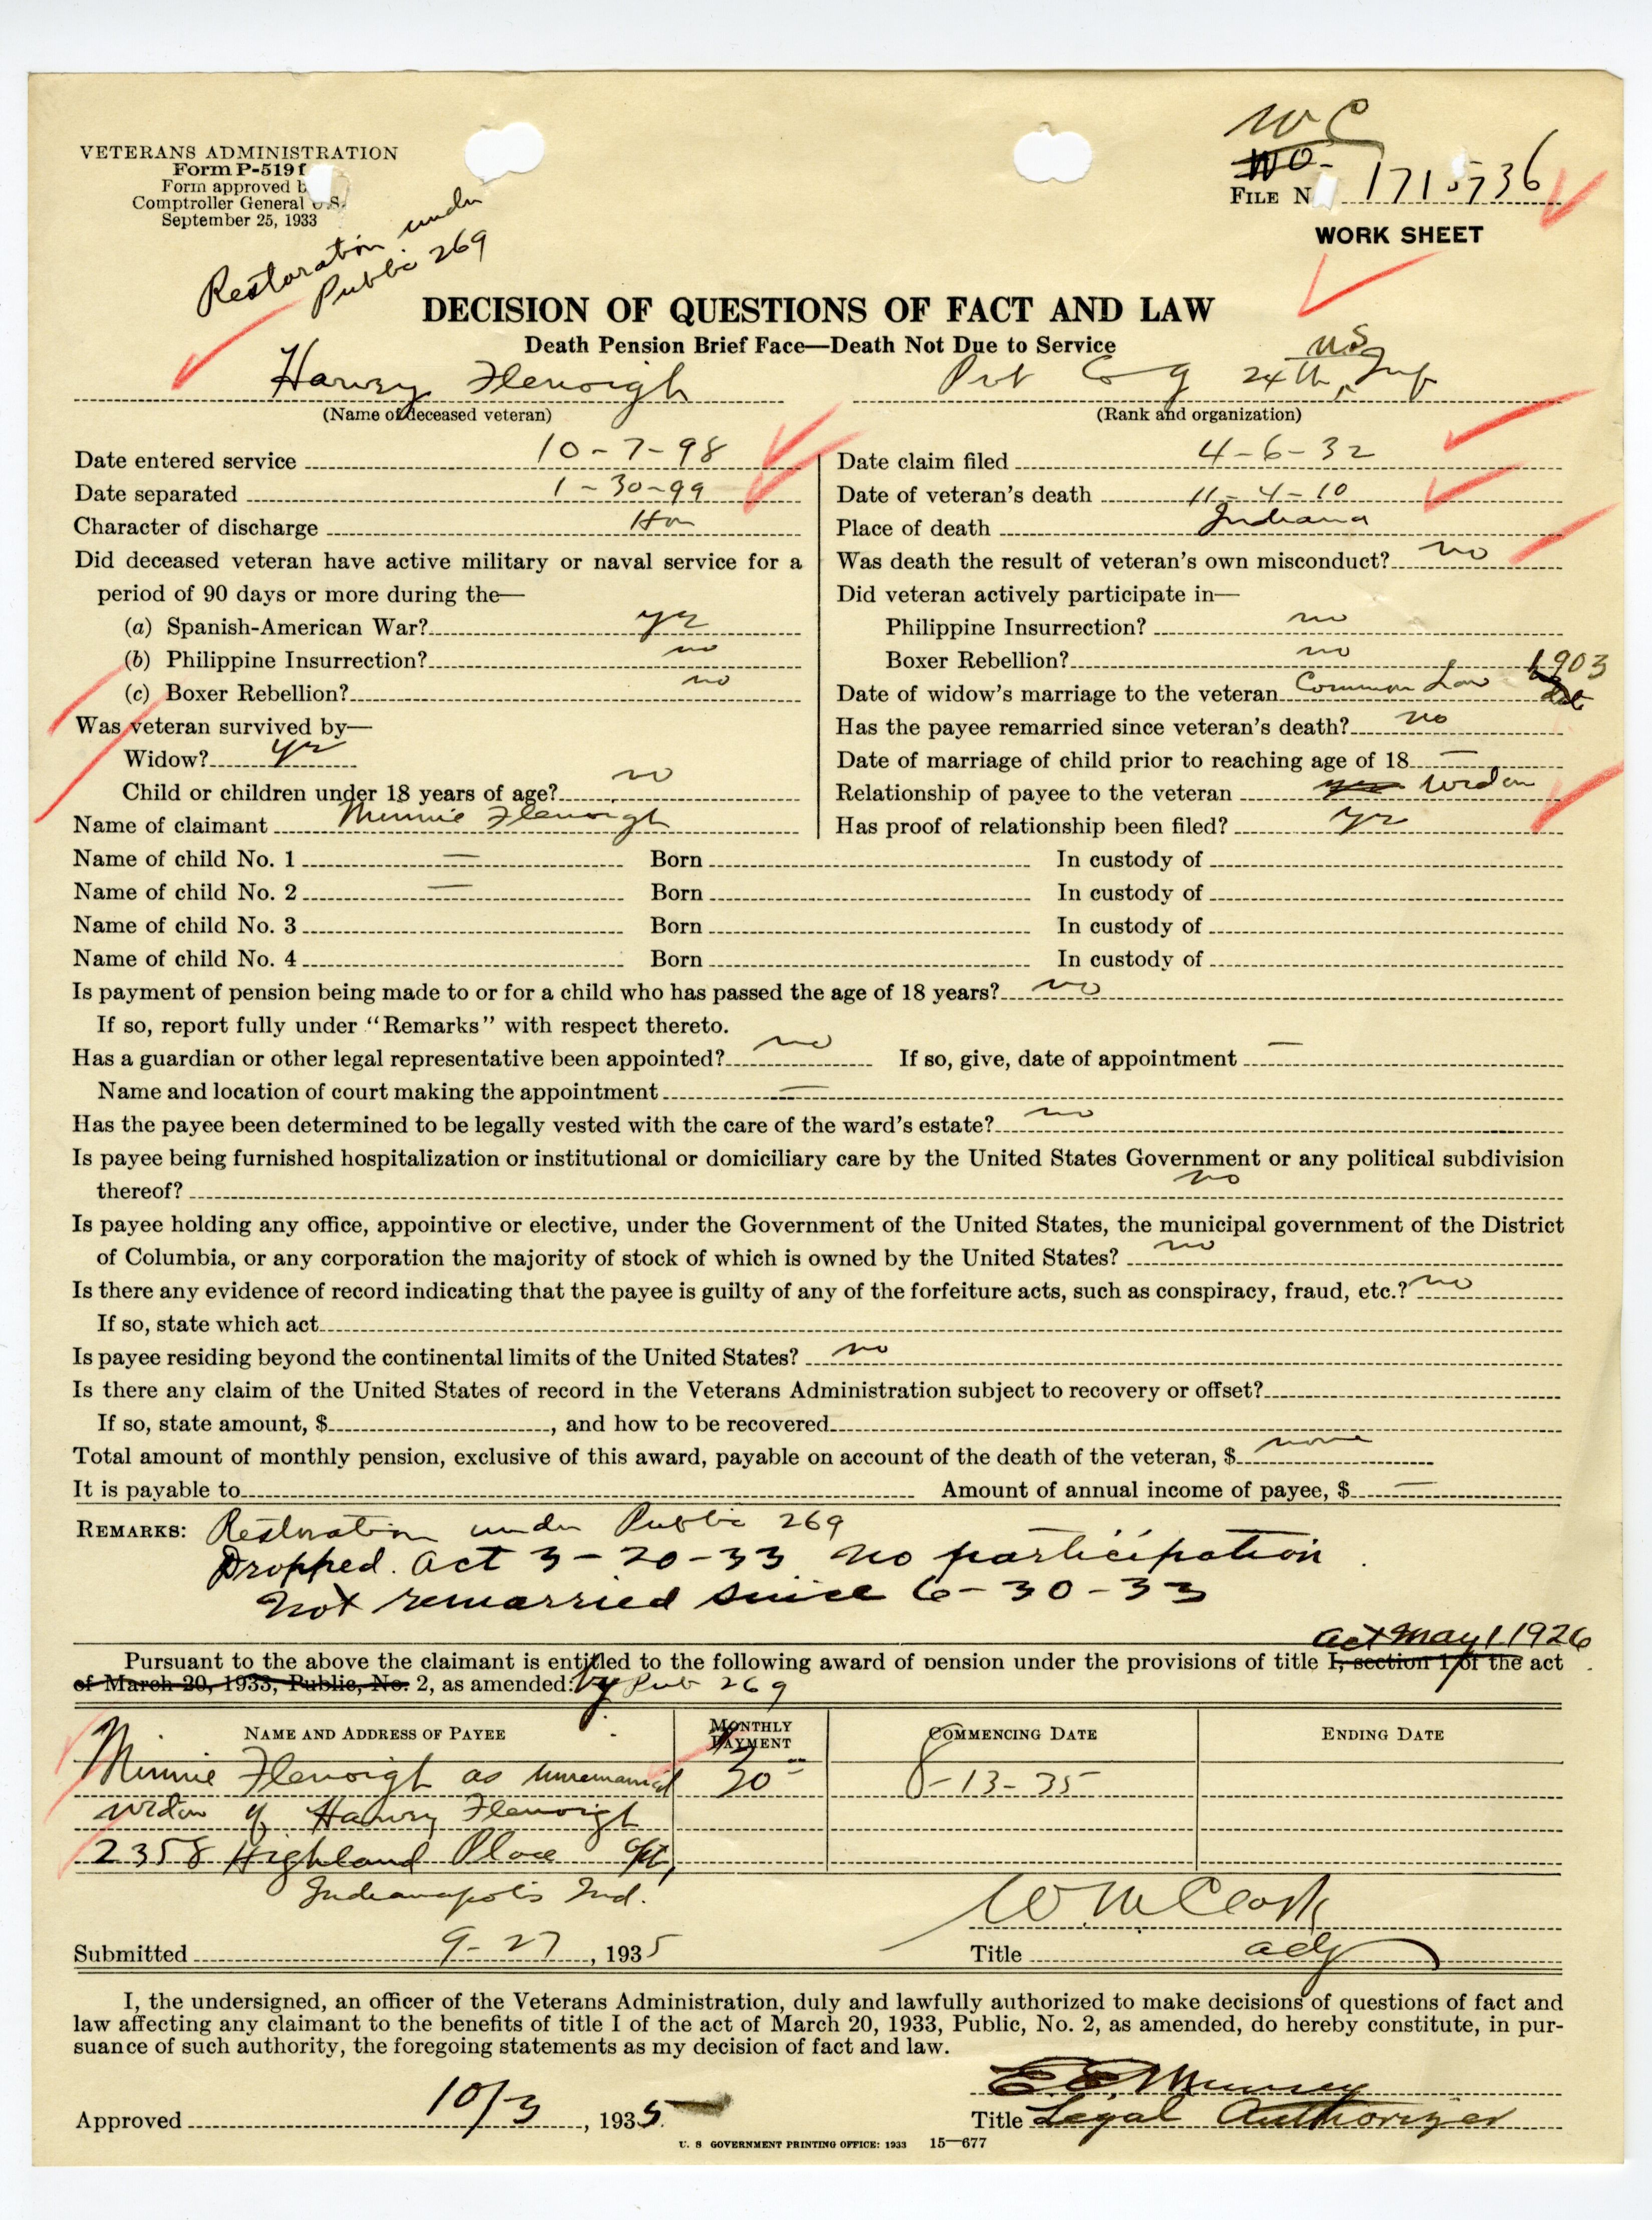 VETERANS ADMINISTRATION
Form P-519f
Form approved b
Comptroller General U.S.
September 25, 1933
Restoration under
Public 269
WC
WO-
FILE N 1715736
WORK SHEET
DECISION OF QUESTIONS OF FACT AND LAW
Death Pension Brief Face—Death Not Due to Service
Harvey Flenoigh
(Name of deceased veteran)
Pvt Co G 24th, US Inf
(Rank and organization)
Date entered service 10-7-98
Date separated 1-30-99
Character of discharge Hon
Did deceased veteran have active military or naval service for a
period of 90 days or more during the—
(a) Spanish-American War? yes
(b) Philippine Insurrection? no
(c) Boxer Rebellion? no
Was veteran survived by—
Widow? yes
Child or children under 18 years of age? no
Name of claimant Minnie Flenoigh
Date claim filed 4-6-32
Date of veteran's death 11-4-10
Place of death Indiana
Was death the result of veteran's own misconduct? no
Did veteran actively participate in—
Philippine Insurrection? no
Boxer Rebellion? no
Date of widow's marriage to the veteran Common Law 1903
Has the payee remarried since veteran's death? no
Date of marriage of child prior to reaching age of 18 —
Relationship of payee to the veteran yes widow
Has proof of relationship been filed? yes
Name of child No. 1 — Born In custody of
Name of child No. 2 — Born In custody of
Name of child No. 3 Born In custody of
Name of child No. 4 Born In custody of
Is payment of pension being made to or for a child who has passed the age of 18 years? no
If so, report fully under "Remarks" with respect thereto.
Has a guardian or other legal representative been appointed? no If so, give, date of appointment —
Name and location of court making the appointment —
Has the payee been determined to be legally vested with the care of the ward's estate? no
Is payee being furnished hospitalization or institutional or domiciliary care by the United States Government or any political subdivision
thereof? no
Is payee holding any office, appointive or elective, under the Government of the United States, the municipal government of the District
of Columbia, or any corporation the majority of stock of which is owned by the United States? no
Is there any evidence of record indicating that the payee is guilty of any of the forfeiture acts, such as conspiracy, fraud, etc.? no
If so, state which act
Is payee residing beyond the continental limits of the United States? no
Is there any claim of the United States of record in the Veterans Administration subject to recovery or offset?
If so, state amount, $ , and how to be recovered
Total amount of monthly pension, exclusive of this award, payable on account of the death of the veteran, $ none
It is payable to Amount of annual income of payee, $ —
REMARKS: Restoration under Public 269
Dropped. Act 3-20-33 no participation.
Not remarried since 6-30-33
Act May 1 1926
Pursuant to the above the claimant is entitled to the following award of pension under the provisions of title I, section 1, of the act
of March 20, 1933, Public, No. 2, as amended: by Pub 269
NAME AND ADDRESS OF PAYEE MONTHLY PAYMENT COMMENCING DATE ENDING DATE
Minnie Flenoigh as unremarried 30— 8-13-35
widow of Harvey Flenoigh
2358 Highland Place apt,
Indianapolis Ind.
W. M. Clark
Submitted 9-27, 1935 Title adj
I, the undersigned, an officer of the Veterans Administration, duly and lawfully authorized to make decisions of questions of fact and
law affecting any claimant to the benefits of title I of the act of March 20, 1933, Public, No. 2, as amended, do hereby constitute, in pur-
suance of such authority, the foregoing statements as my decision of fact and law.
E E Munsey
Approved 10/3, 1935. Title Legal Authorizer
U. S GOVERNMENT PRINTING OFFICE: 1933 15—677